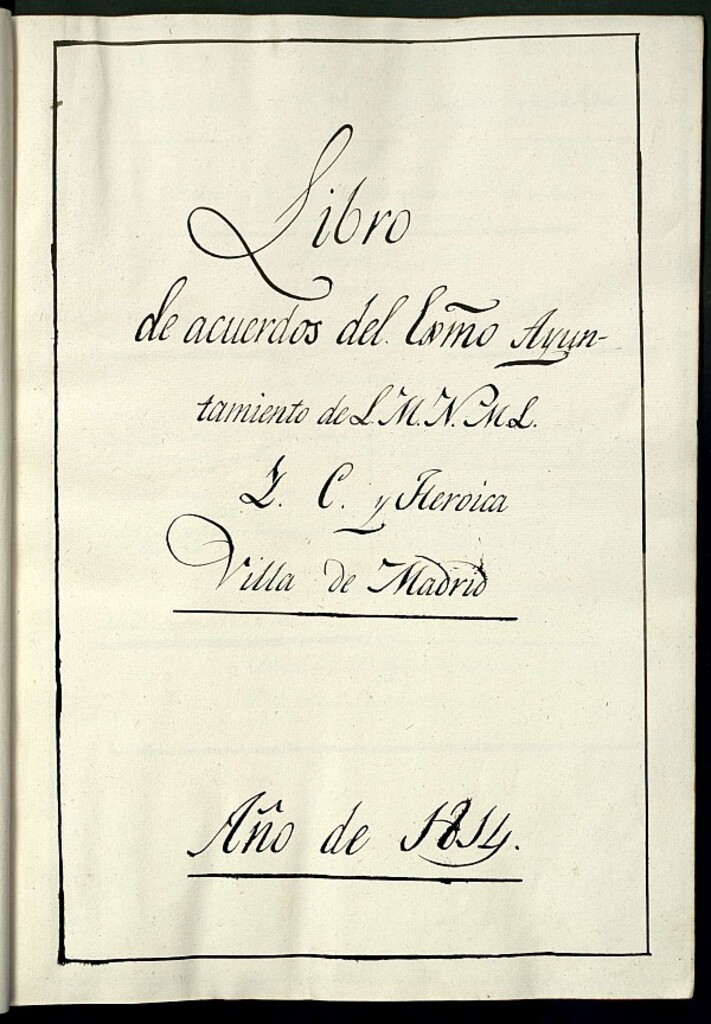 Libro
de acuerdos del. Exm̃o Ayun-
tamiento de L. M. N. M. L.
I. C. y Heroica
Villa de Madrid
Año de 1814.